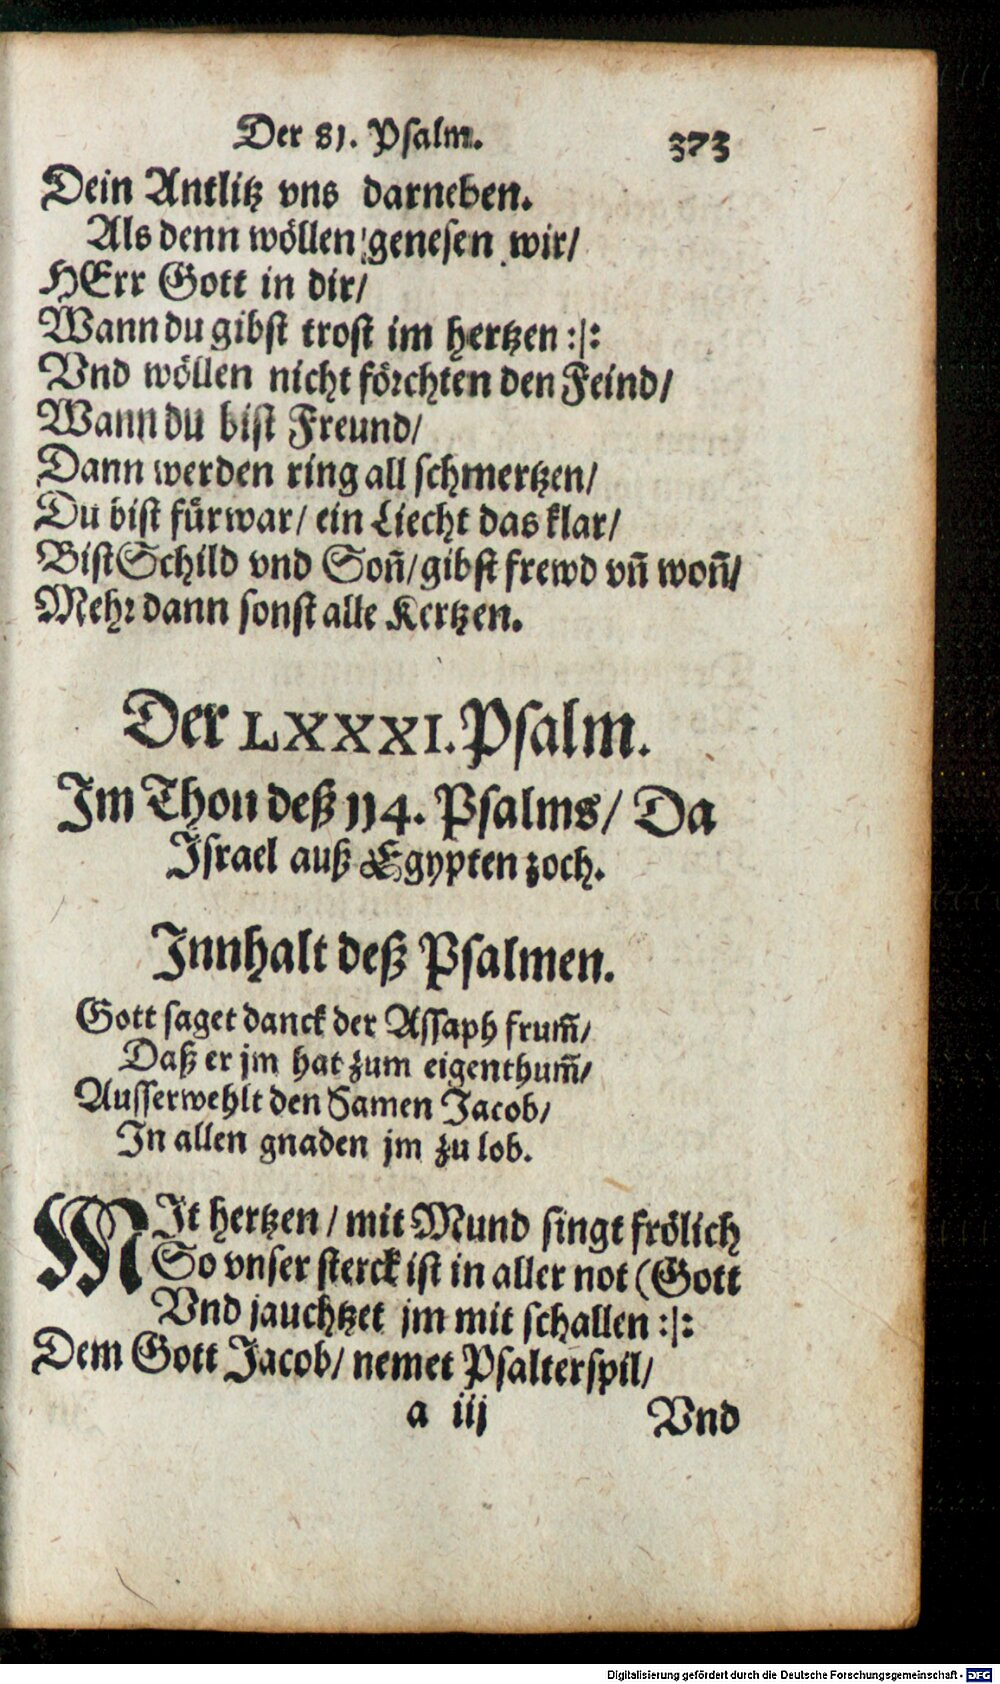 Der 81. Psalm. 373
Dein Antlitz vns darneben.
Als denn wöllen genesen wir/
HErr Gott in dir/
Wann du gibst trost im hertzen :|:
Vnd wöllen nicht förchten den Feind/
Wann du bist Freund/
Dann werden ring all schmertzen/
Du bist fürwar/ ein Liecht das klar/
Bist Schild vnd Soñ/ gibst frewd vñ woñ/
Mehr dann sonst alle Kertzen.
Der LXXXI. Psalm.
Im Thon deß 114. Psalms/ Da
Israel auß Egypten zoch.
Innhalt deß Psalmen.
Gott saget danck der Assaph frum̃/
Daß er jm hat zum eigenthum̃/
Ausserwehlt den Samen Jacob/
In allen gnaden jm zu lob.
MIt hertzen / mit Mund singt frölich
So vnser sterck ist in aller not (Gott
Vnd jauchtzet jm mit schallen :|:
Dem Gott Jacob/ nemet Psalterspil/
a iij Vnd
Digitalisierung gefördert durch die Deutsche Forschungsgemeinschaft - DFG